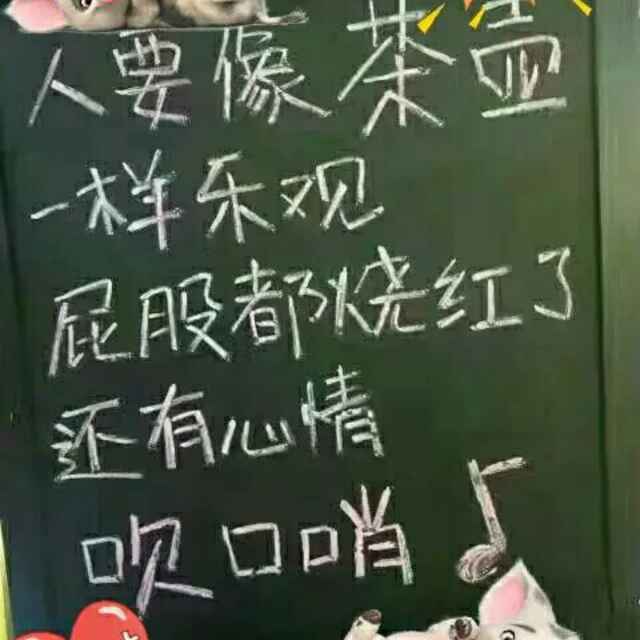 人要像茶壶
一样乐观
屁股都烧红了
还有心情
吹口哨